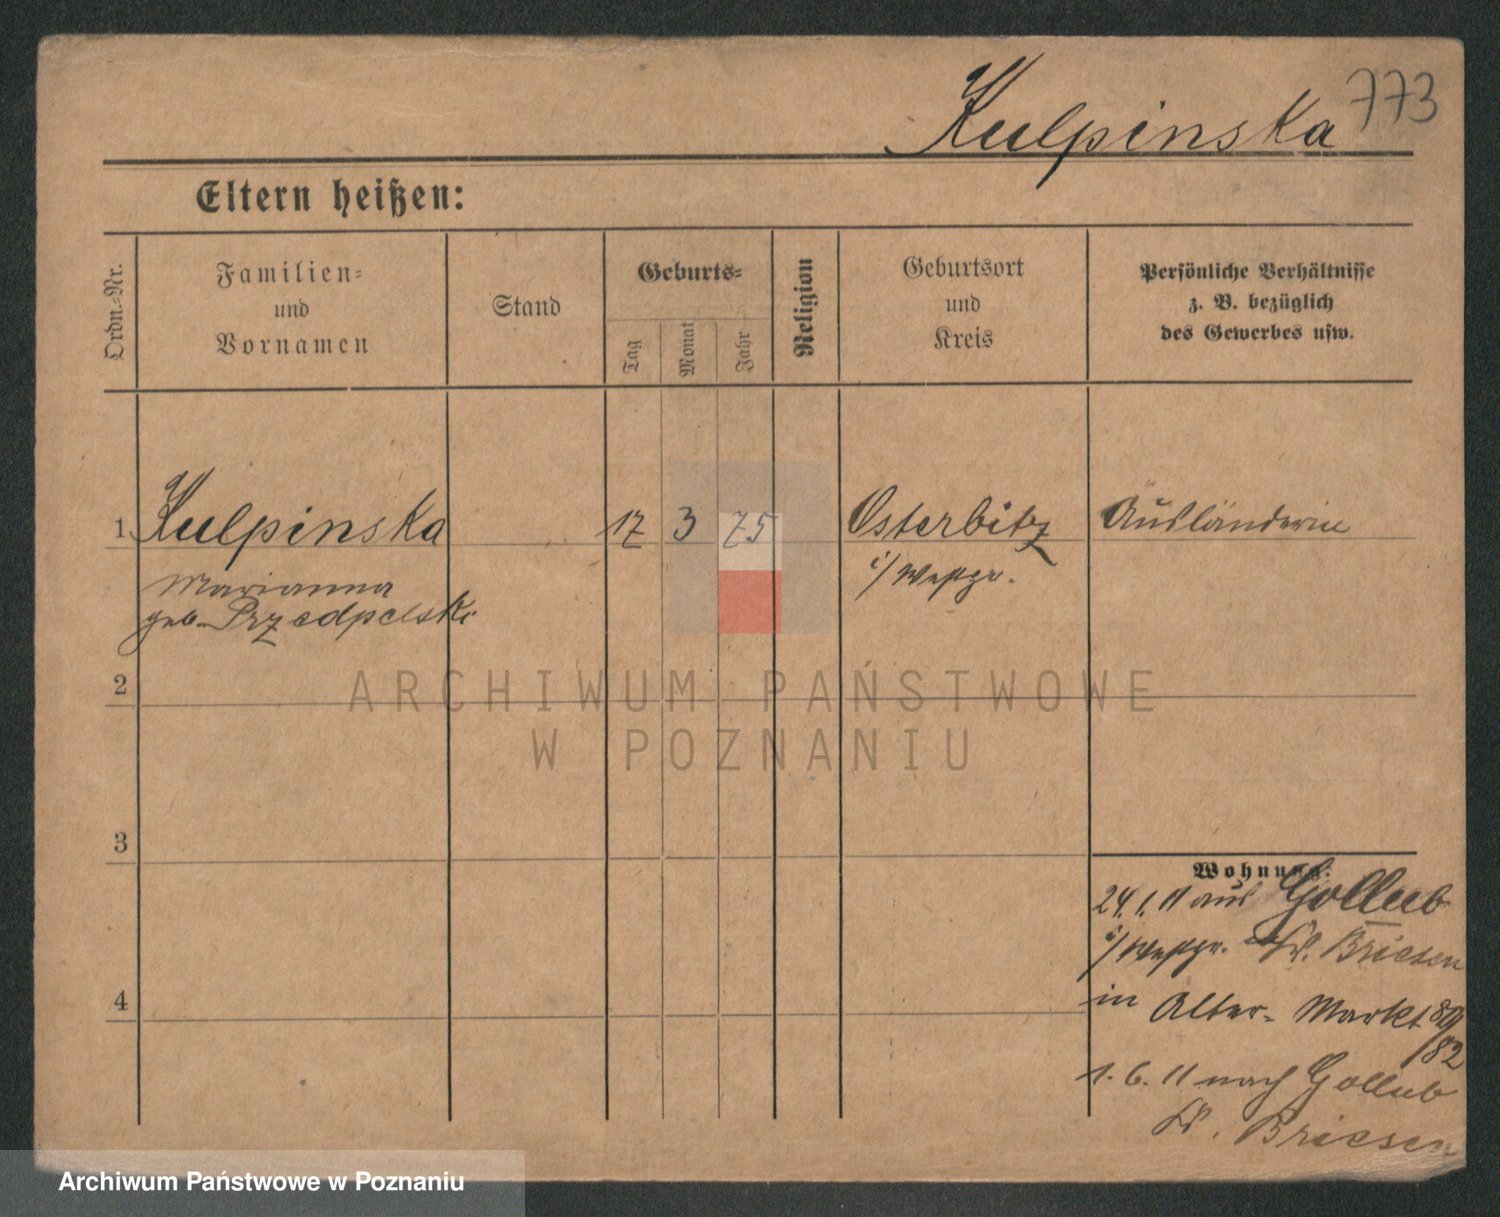 773
Kulpinska
Eltern heißen:
Ordn.=Nr.
Familien=
und
Vornamen
Stand
Geburts=
Tag
Monat
Jahr
Religion
Geburtsort
und
Kreis
Persönliche Verhältnisse
z. B. bezüglich
des Gewerbes usw.
1 Kulpinska 17 3 75 Osterbitz Ausländerin
Marianna i/Westpr.
geb. Przedpelski
2
ARCHIWUM PAŃSTWOWE
W POZNANIU
3
Wohnung:
24. 1. 11 aus Gollub
i/Westpr. Kr. Briesen
4
in Alter-Markt 80/82
1. 6. 11 nach Gollub
Kr. Briesen
Archiwum Państwowe w Poznaniu